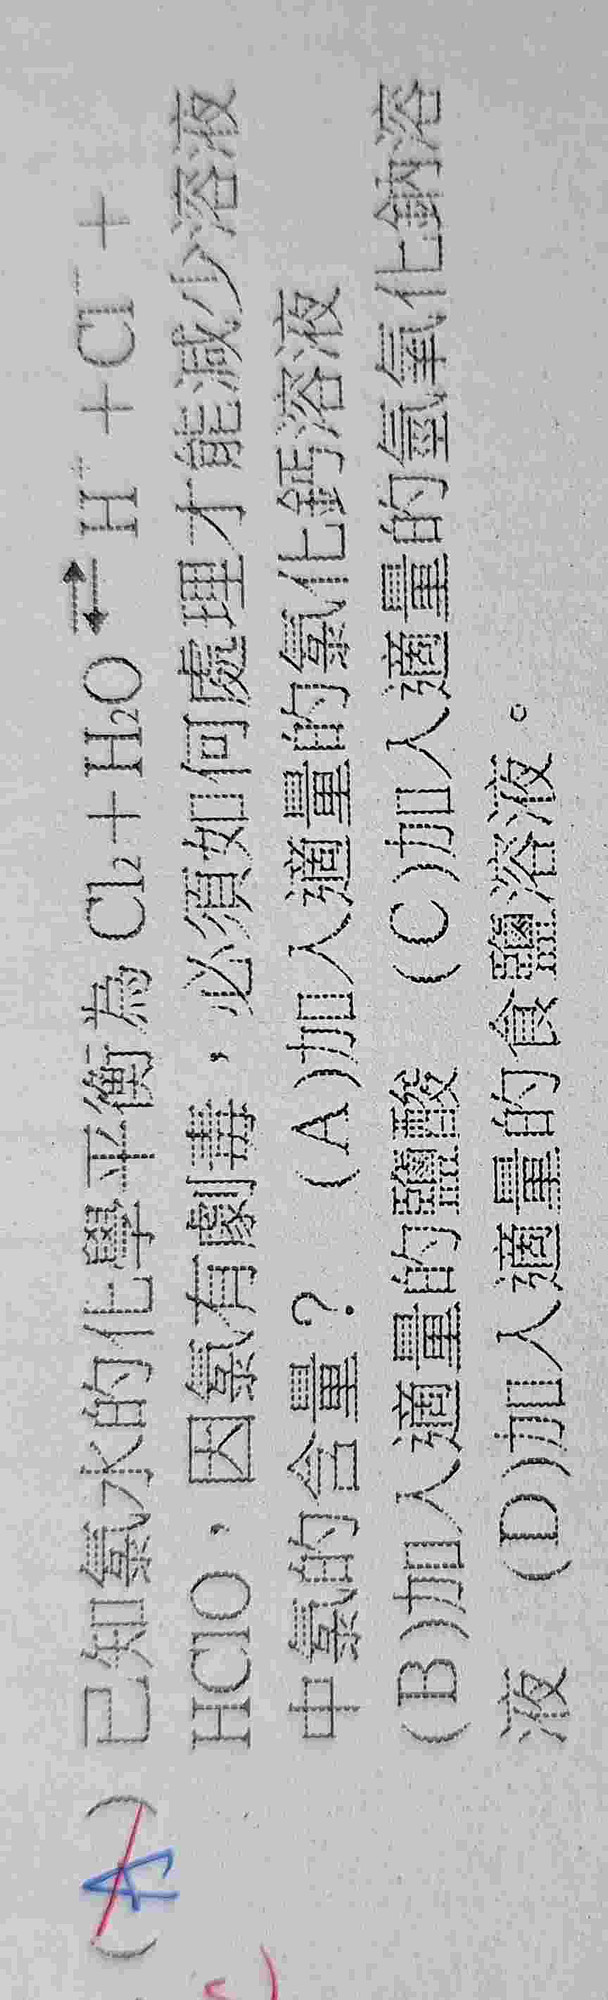 (A)已知氯水的化學平衡為 Cl₂+H₂O⇄H⁺+Cl⁻+
HClO，因氯有劇毒，必須如何處理才能減少溶液
中氯的含量？ (A)加入適量的氯化鈣溶液
(B)加入適量的鹽酸 (C)加入適量的氫氧化鈉溶
液 (D)加入適量的食鹽溶液。